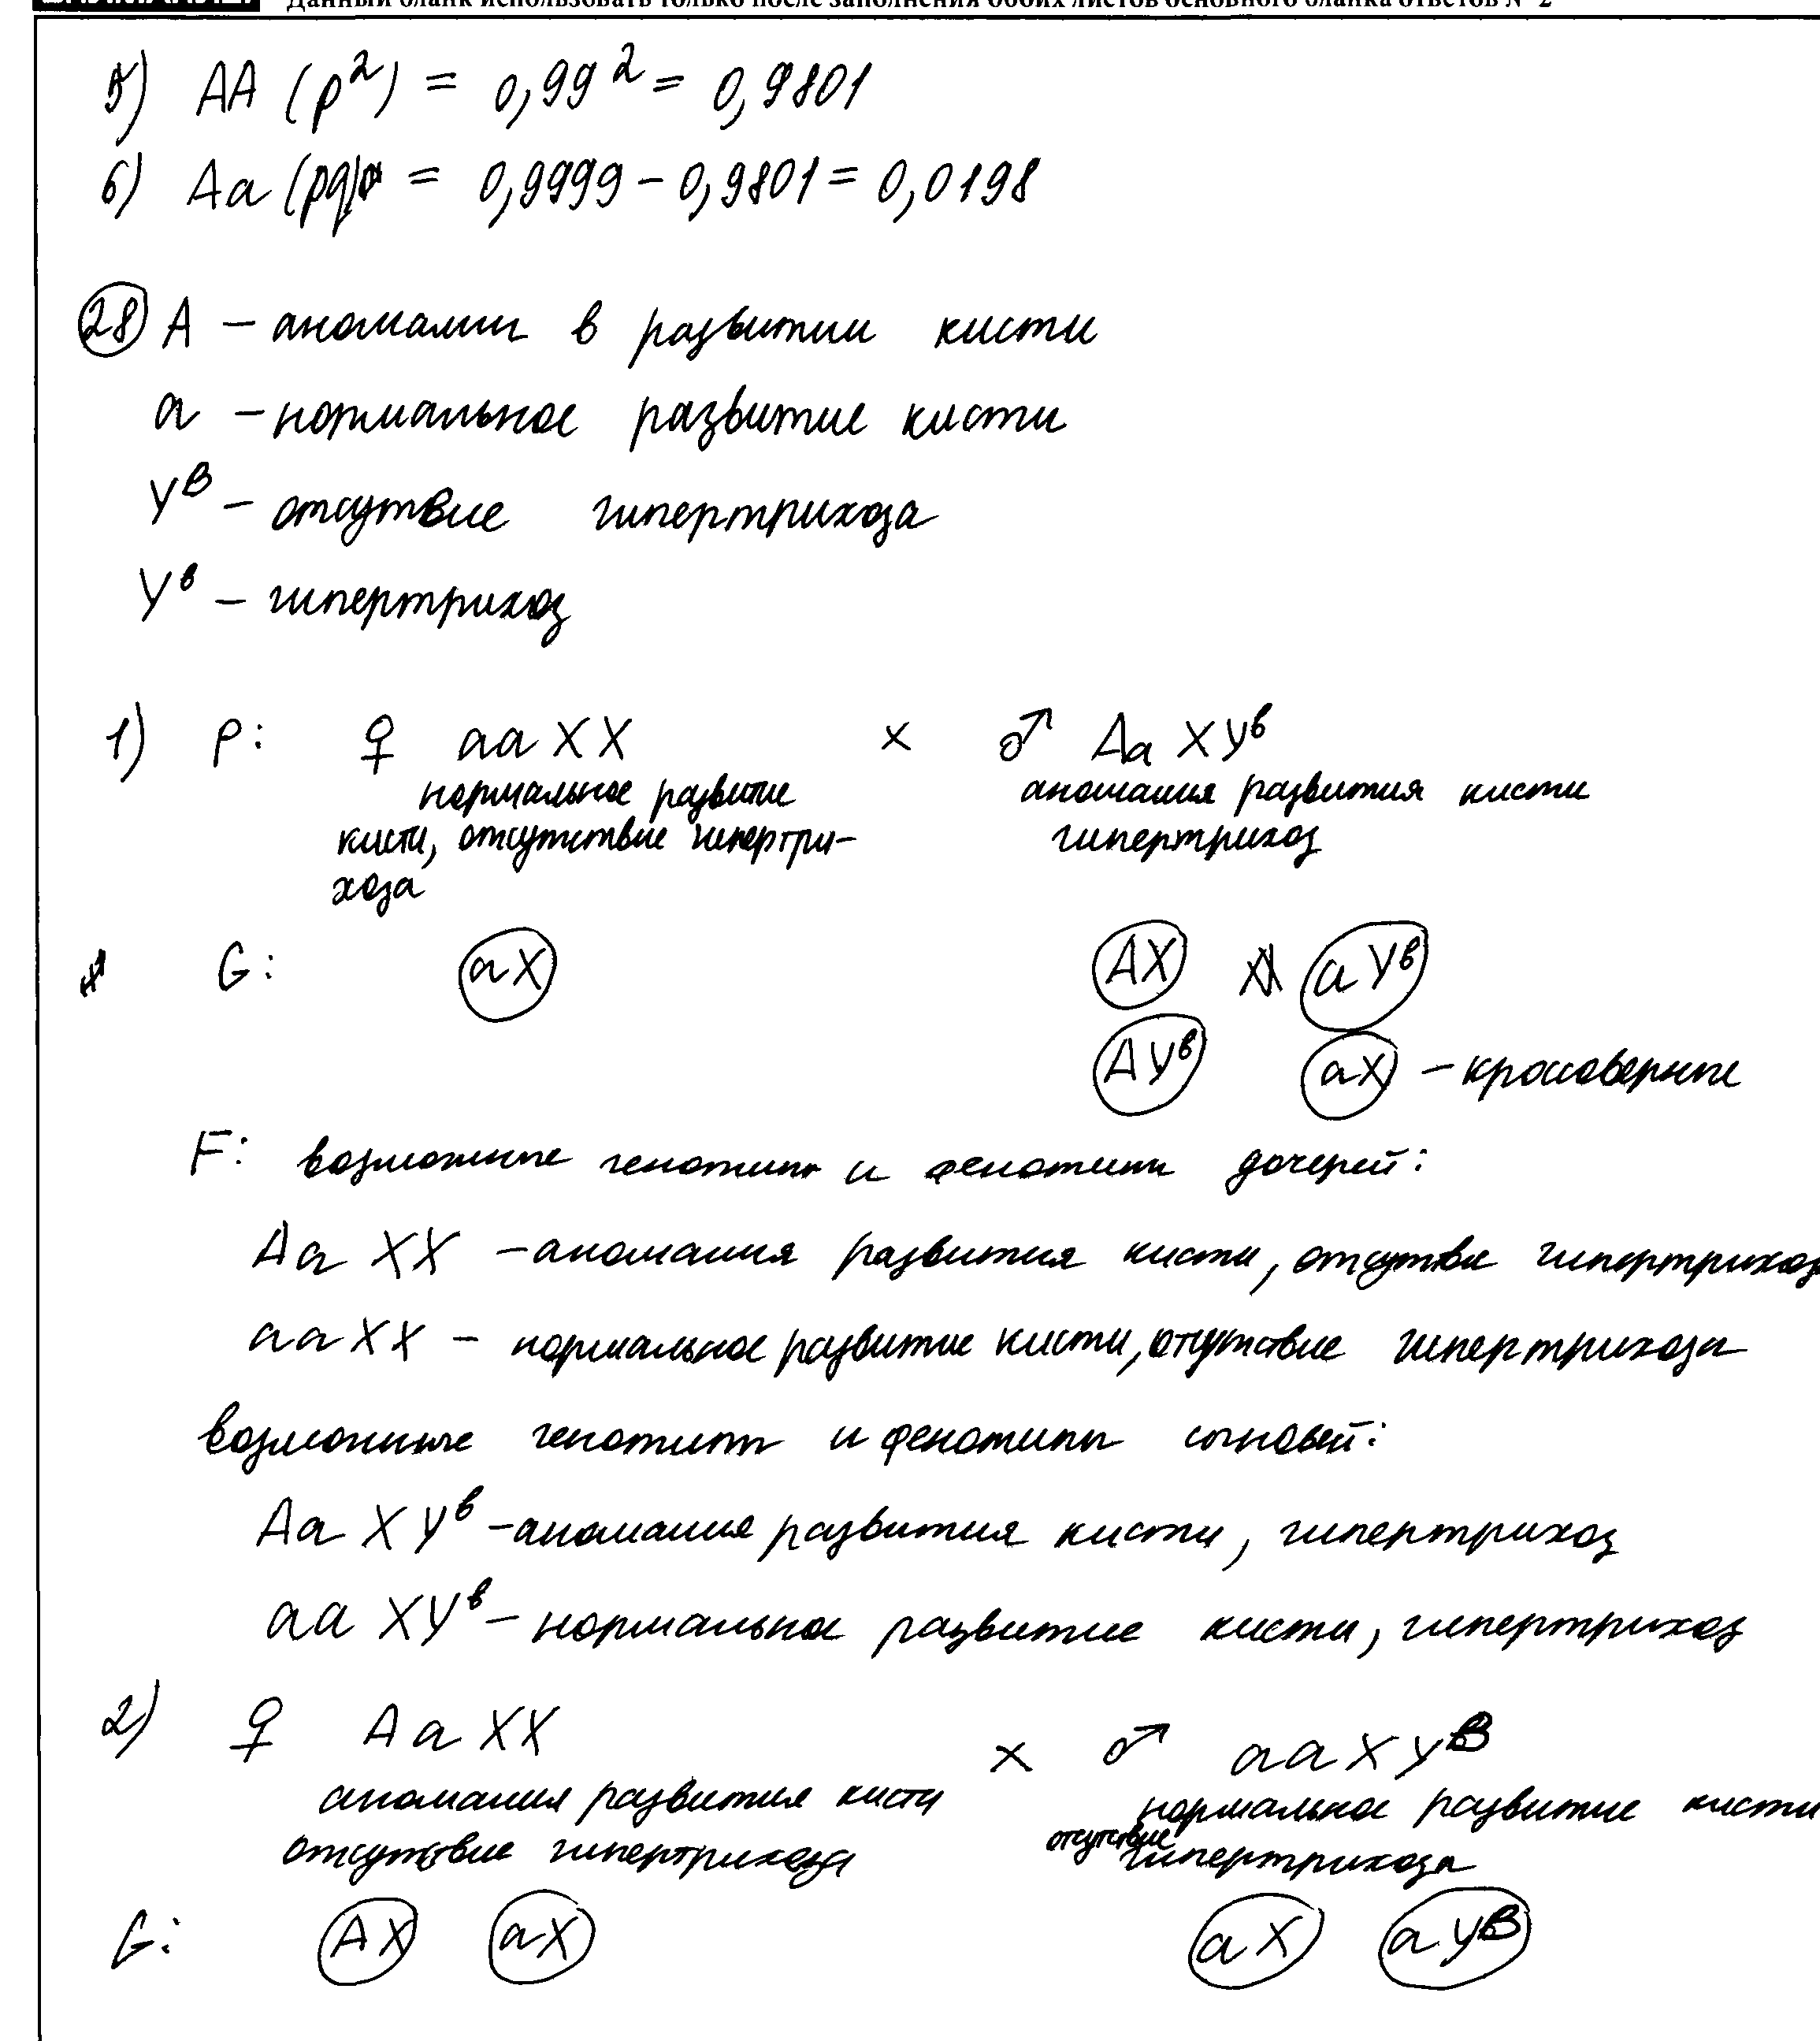 Данный бланк использовать только после заполнения обоих листов основного бланка ответов № 2
5) AA (p²) = 0,99² = 0,9801
6) Aa (pq) = 0,9999 – 0,9801 = 0,0198
28) A – аномалии в развитии кисти
a – нормальное развитие кисти
Yᴮ – отсутвие гипертрихоза
Yᵇ – гипертрихоз
1) P: ♀ aaXX × ♂ AaXYᵇ
нормальное развитие аномалия развития кисти
кисти, отсутствие гипертри- гипертрихоз
хоза
G: aX AX aYᵇ
AYᵇ aX – кроссоверные
F: возможные генотипы и фенотипы дочерей:
Aa XX – аномалия развития кисти, отсутвие гипертрихоз
aaXX – нормальное развитие кисти, отсутствие гипертрихоза
возможные генотипы и фенотипы сыновей:
Aa XYᵇ – аномалия развития кисти, гипертрихоз
aa XYᵇ – нормальное развитие кисти, гипертрихоз
2) ♀ Aa XX × ♂ aaXYᴮ
аномалия развития кисти нормальное развитие кисти
отсутствие гипертрихоза отсутствие гипертрихоза
G: AX aX aX aYᴮ